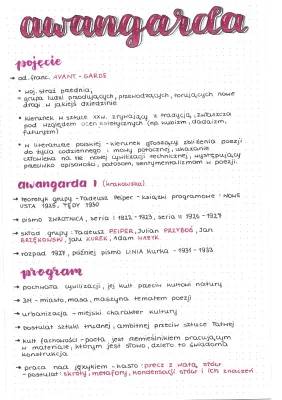 awangarda
pojęcie
→ od franc. AVANT-GARDE
* woj. straż przednia,
= grupa ludzi przodujących, przewodzących, torujących nowe
drogi w jakiejś dziedzinie
* kierunek w sztuce XXw. zrywający z tradycją, zwłaszcza
pod względem ocen estetycznych (np. kubizm, dadaizm,
futuryzm)
* w literaturze polskiej - kierunek głoszący zbliżenia poezji
do życia codziennego i mowy potocznej, ukazanie
człowieka na tle nowej cywilizacji technicznej, występujący
przeciwko opisowości, patosom, sentymentalizmom w poezji.
awangarda 1 (krakowska)
→ teoretyk grupy - Tadeusz Peiper - książki programowe: NOWE
USTA 1925, TĘDY 1930
→ pismo ZWROTNICA, seria I 1922-1923, seria II 1926-1927
→ skład grupy: Tadeusz PEIPER, Julian PRZYBOŚ, Jan
BRZĘKOWSKI, Jalu KUREK, Adam WAŻYK
→ rozpad 1927, później pismo LINIA Kurka - 1931-1933
program
→ pochwała cywilizacji, jej kult przeciw kultowi natury
→ 3M - miasto, masa, maszyna tematem poezji
→ urbanizacja - miejski charakter kultury
→ postulat sztuki trudnej, ambitnej przeciw sztuce łatwej
→ kult fachowości - poeta jest rzemieślnikiem pracującym
w materiale, którym jest słowo, dzieło to świadoma
konstrukcja
→ praca nad językiem - hasło: precz z watą słów
- postulat: skróty, metafory, kondensacji słów i ich znaczeń